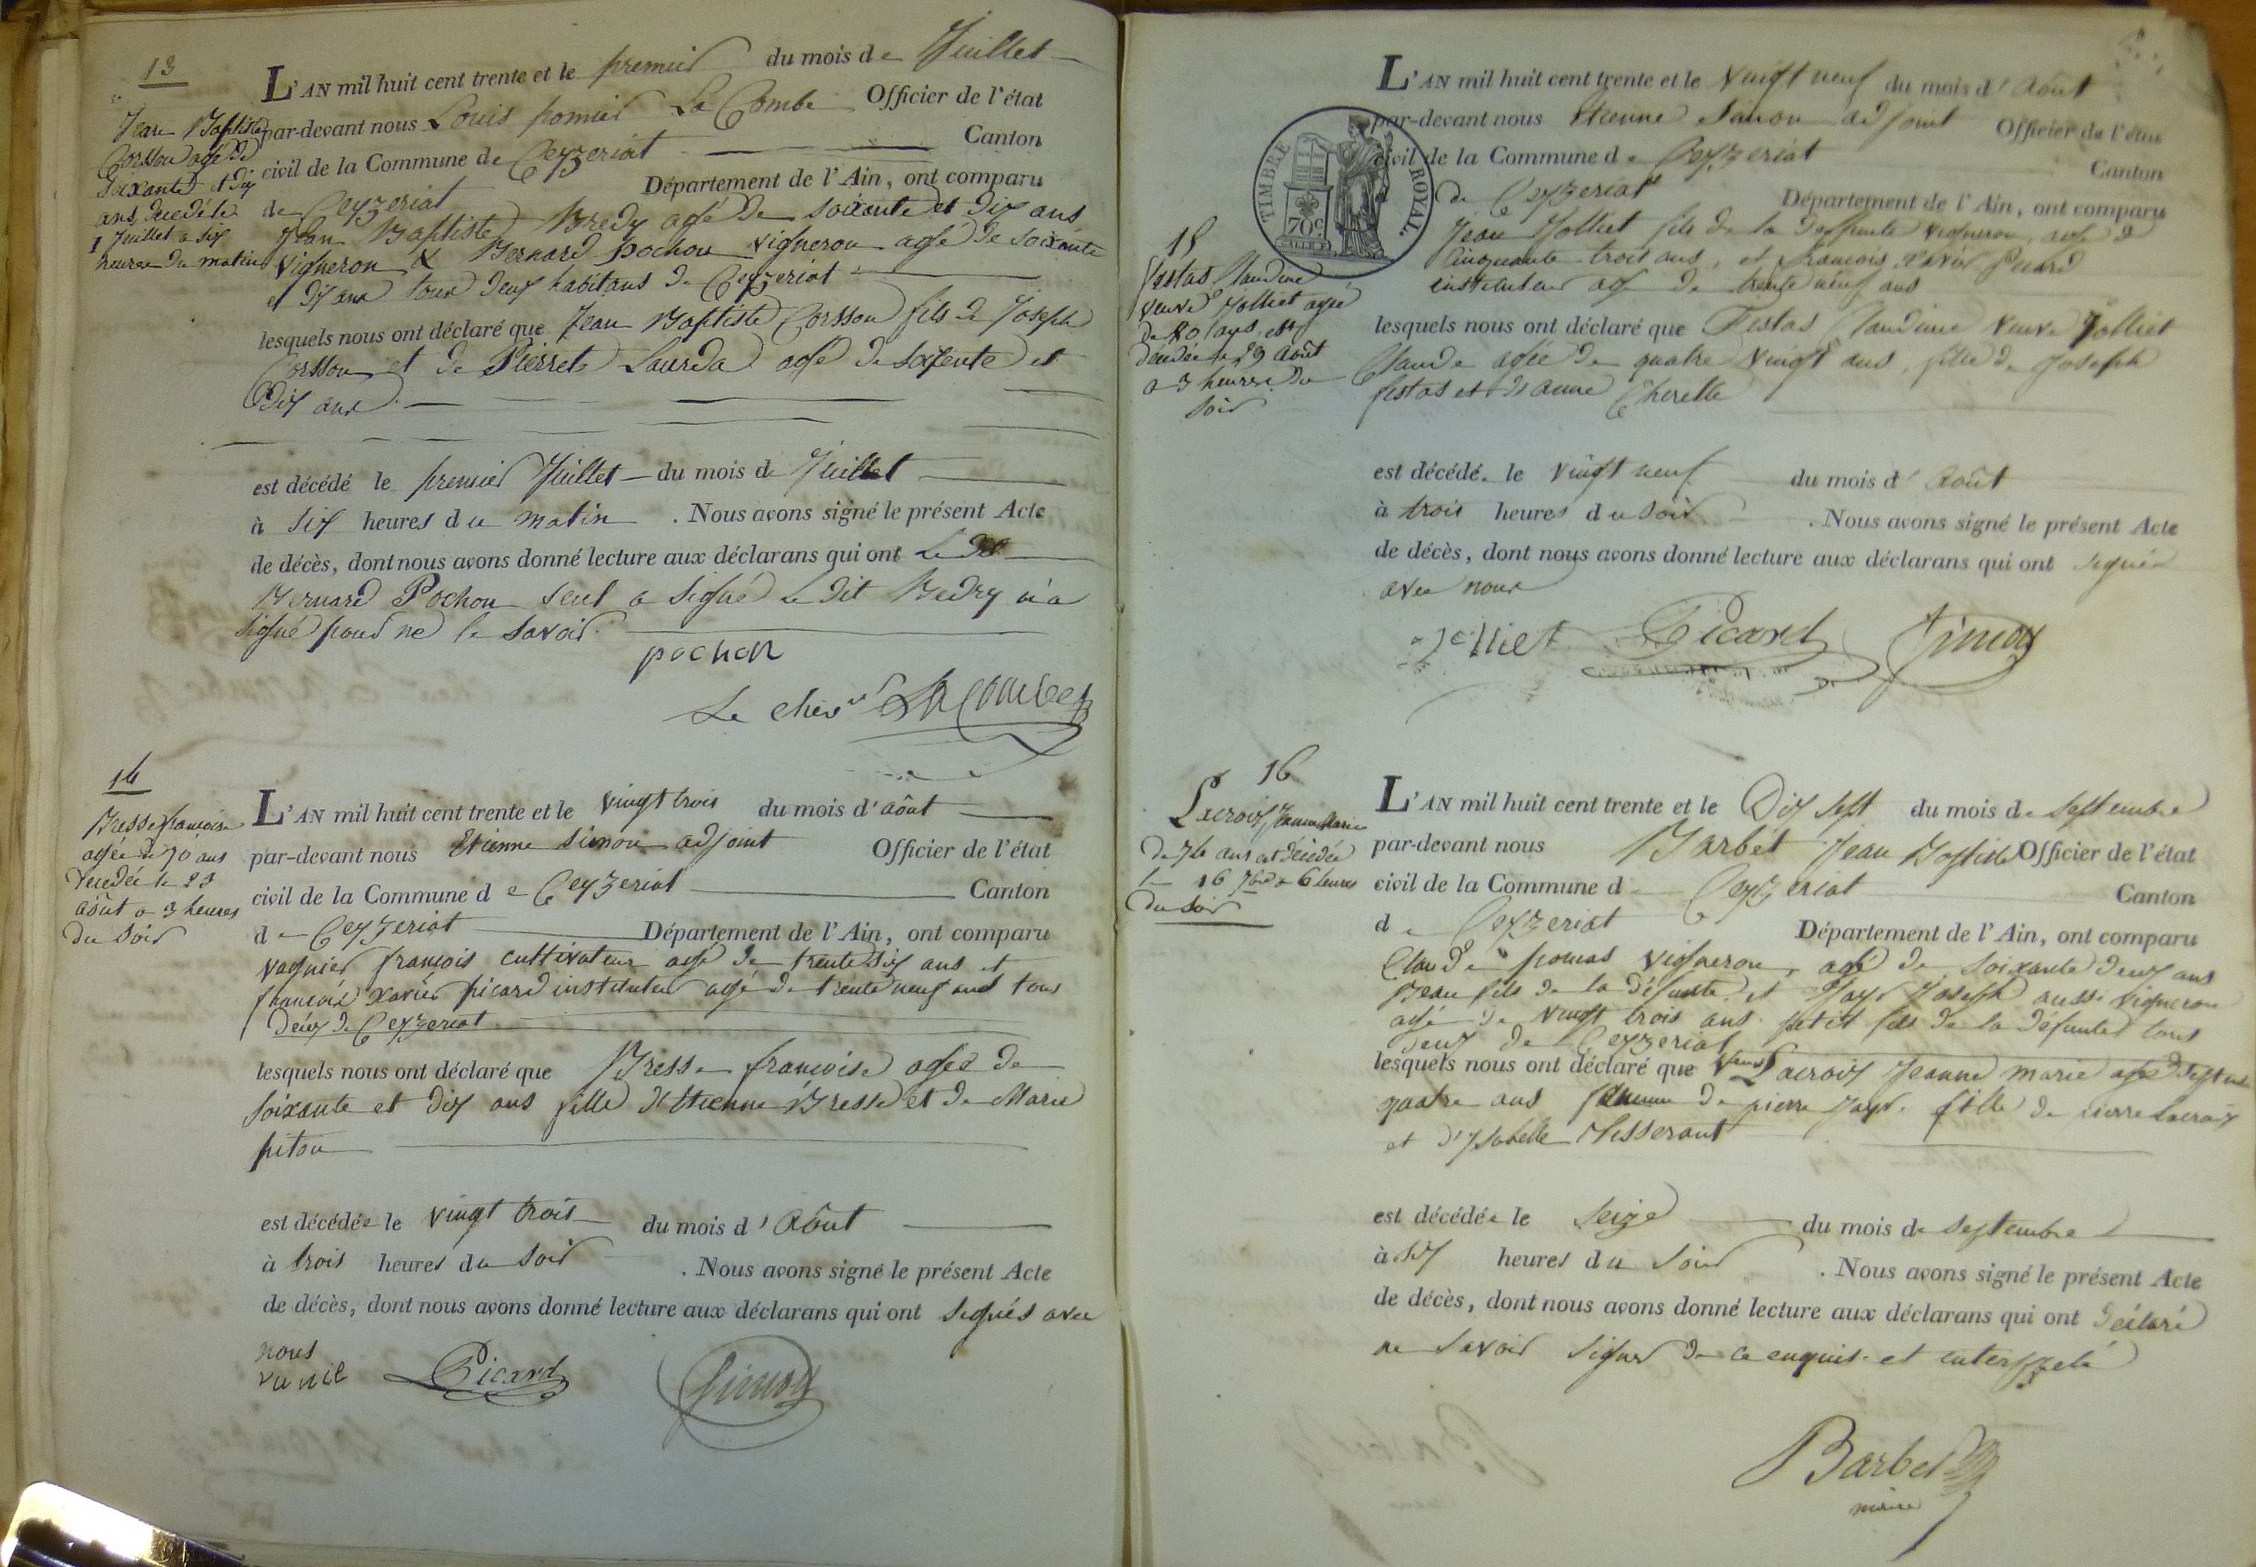 13
Jean Baptiste
Corsson agé de
soixante et dix
ans, decedé le
1 Juillet a six
heures du matin
L'AN mil huit cent trente et le premier du mois de Juillet
par-devant nous Louis La Combe Officier de l'état
civil de la Commune de Ceyzeriat Canton
de Ceyzeriat Département de l'Ain, ont comparu
Jean Baptiste Bredy agé de soixante et dix ans
vigneron & Bernard Pochon vigneron agé de soixante
et dix ans tous deux habitans de Ceyzeriat
lesquels nous ont déclaré que Jean Baptiste Corsson fils de Joseph
Corsson et de Pierrete agé de soixente et
Dix ans
est décédé le premier Juillet du mois de Juillet
à six heures du matin . Nous avons signé le présent Acte
de décès, dont nous avons donné lecture aux déclarans qui ont
Bernard Pochon seul a signé le dit Bredy n'a
signé pour ne le savoir.
pochon
Le chev.er LA COMBE
14
Bresse françoise
agée de 70 ans
decedée le 23
août a 3 heures
du soir
L'AN mil huit cent trente et le vingt trois du mois d'août
par-devant nous Etienne Simon adjoint Officier de l'état
civil de la Commune de Ceyzeriat Canton
de Ceyzeriat Département de l'Ain, ont comparu
françois cultivateur agé de trente six ans et
françois xavier picard instituteur agé de trente neuf ans tous
deux de Ceyzeriat
lesquels nous ont déclaré que Bresse françoise agée de
soixante et dix ans fille d'Etienne Bresse et de Marie
piton
est décédée le vingt trois du mois d'Août
à trois heures du soir . Nous avons signé le présent Acte
de décès, dont nous avons donné lecture aux déclarans qui ont signés avec
nous
Picard Simon
TIMBRE ROYAL
70 c.
15
festas Claudine
veuve Jolliet agée
de 80 ans, est
decedée le 29 août
a 3 heures du
soir
L'AN mil huit cent trente et le vingt neuf du mois d'Août
par-devant nous Etienne Simon adjoint Officier de l'état
civil de la Commune de Ceyzeriat Canton
de Ceyzeriat Département de l'Ain, ont comparu
Jean Jolliet fils de la deffunte vigneron, agé de
Cinquante trois ans, et françois xavier Picard
instituteur agé de trente neuf ans
lesquels nous ont déclaré que Festas Claudine veuve Jolliet
Claude agée de quatre vingt ans, fille de Joseph
festas et d'anne Cherelle
est décédée le vingt neuf du mois d'Août
à trois heures du soir . Nous avons signé le présent Acte
de décès, dont nous avons donné lecture aux déclarans qui ont signés
avec nous
Jolliet Picard Simon
16
Lacroix Jeanne Marie
de 74 ans est decedée
le 16 7bre a 6 heures
du soir
L'AN mil huit cent trente et le Dix sept du mois de septembre
par-devant nous Barbet Jean Baptiste Officier de l'état
civil de la Commune de Ceyzeriat Canton
de Ceyzeriat Département de l'Ain, ont comparu
Claude vigneron, agé de soixante deux ans
Beau fils de la défunte et Joseph aussi vigneron
agé de vingt trois ans petit fils de la défunte tous
deux de Ceyzeriat
lesquels nous ont déclaré que Lacroix Jeanne marie agée de septante
quatre ans de pierre fille de pierre Lacroix
et d'Ysabelle Tisserant
est décédée le seize du mois de septembre
à six heures du soir . Nous avons signé le présent Acte
de décès, dont nous avons donné lecture aux déclarans qui ont déclaré
ne savoir signer de ce enquis et interpelé
Barbet
maire